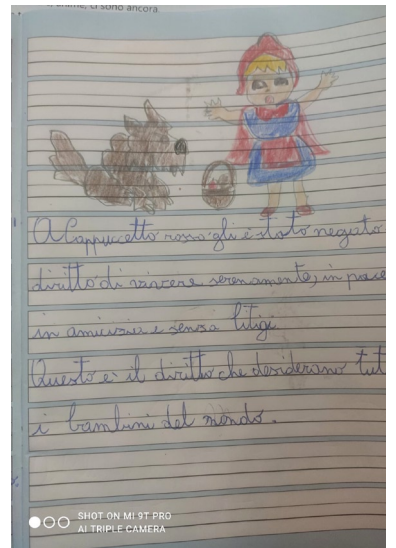 anime, ci sono ancora
A Cappuccetto rosso gli è stato negato
diritto di vivere serenamente, in pace
in amicizia e senza litigi
Questo è il diritto che desiderano tut
i bambini del mondo.
SHOT ON MI 9T PRO
AI TRIPLE CAMERA